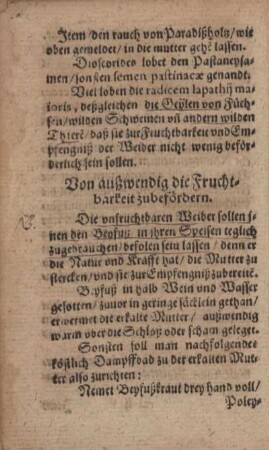 Item / den rauch von Paradißholtz / wie
oben gemeldet / in die mutter gehē lassen.
Dioscorides lobet den Pastaneysa-
men / sonsten semen pastinacæ genandt.
Viel loben die radicem lapathij ma-
ioris, deßgleichen die Geylen von Füch-
sen / wilden Schweinen vñ andern wilden
Thierē / daß sie zur Fruchtbarkeit vnd Em-
pfengniß der Weiber nicht wenig beför-
derlich sein sollen.
Von außwendig die Frucht-
barkeit zubefördern.
Die vnfruchtbaren Weiber sollen j-
nen den Beyfuß in ihren Speisen teglich
zugebrauchen / befolen sein lassen / denn er
die Natur vnd Krafft hat / die Mutter zu
stercken / vnd sie zur Empfengniß zubereitē.
Beyfuß in halb Wein vnd Wasser
gesotten / zuuor in geringe säcklein gethan /
erwermet die erkalte Mutter / außwendig
warm ober die Schloß oder scham geleget.
Sonsten soll man nachfolgendes
köstlich Dampffbad zu der erkalten Mut-
ter also zurichten:
Nemet Beyfußkraut drey hand voll /
Poley-